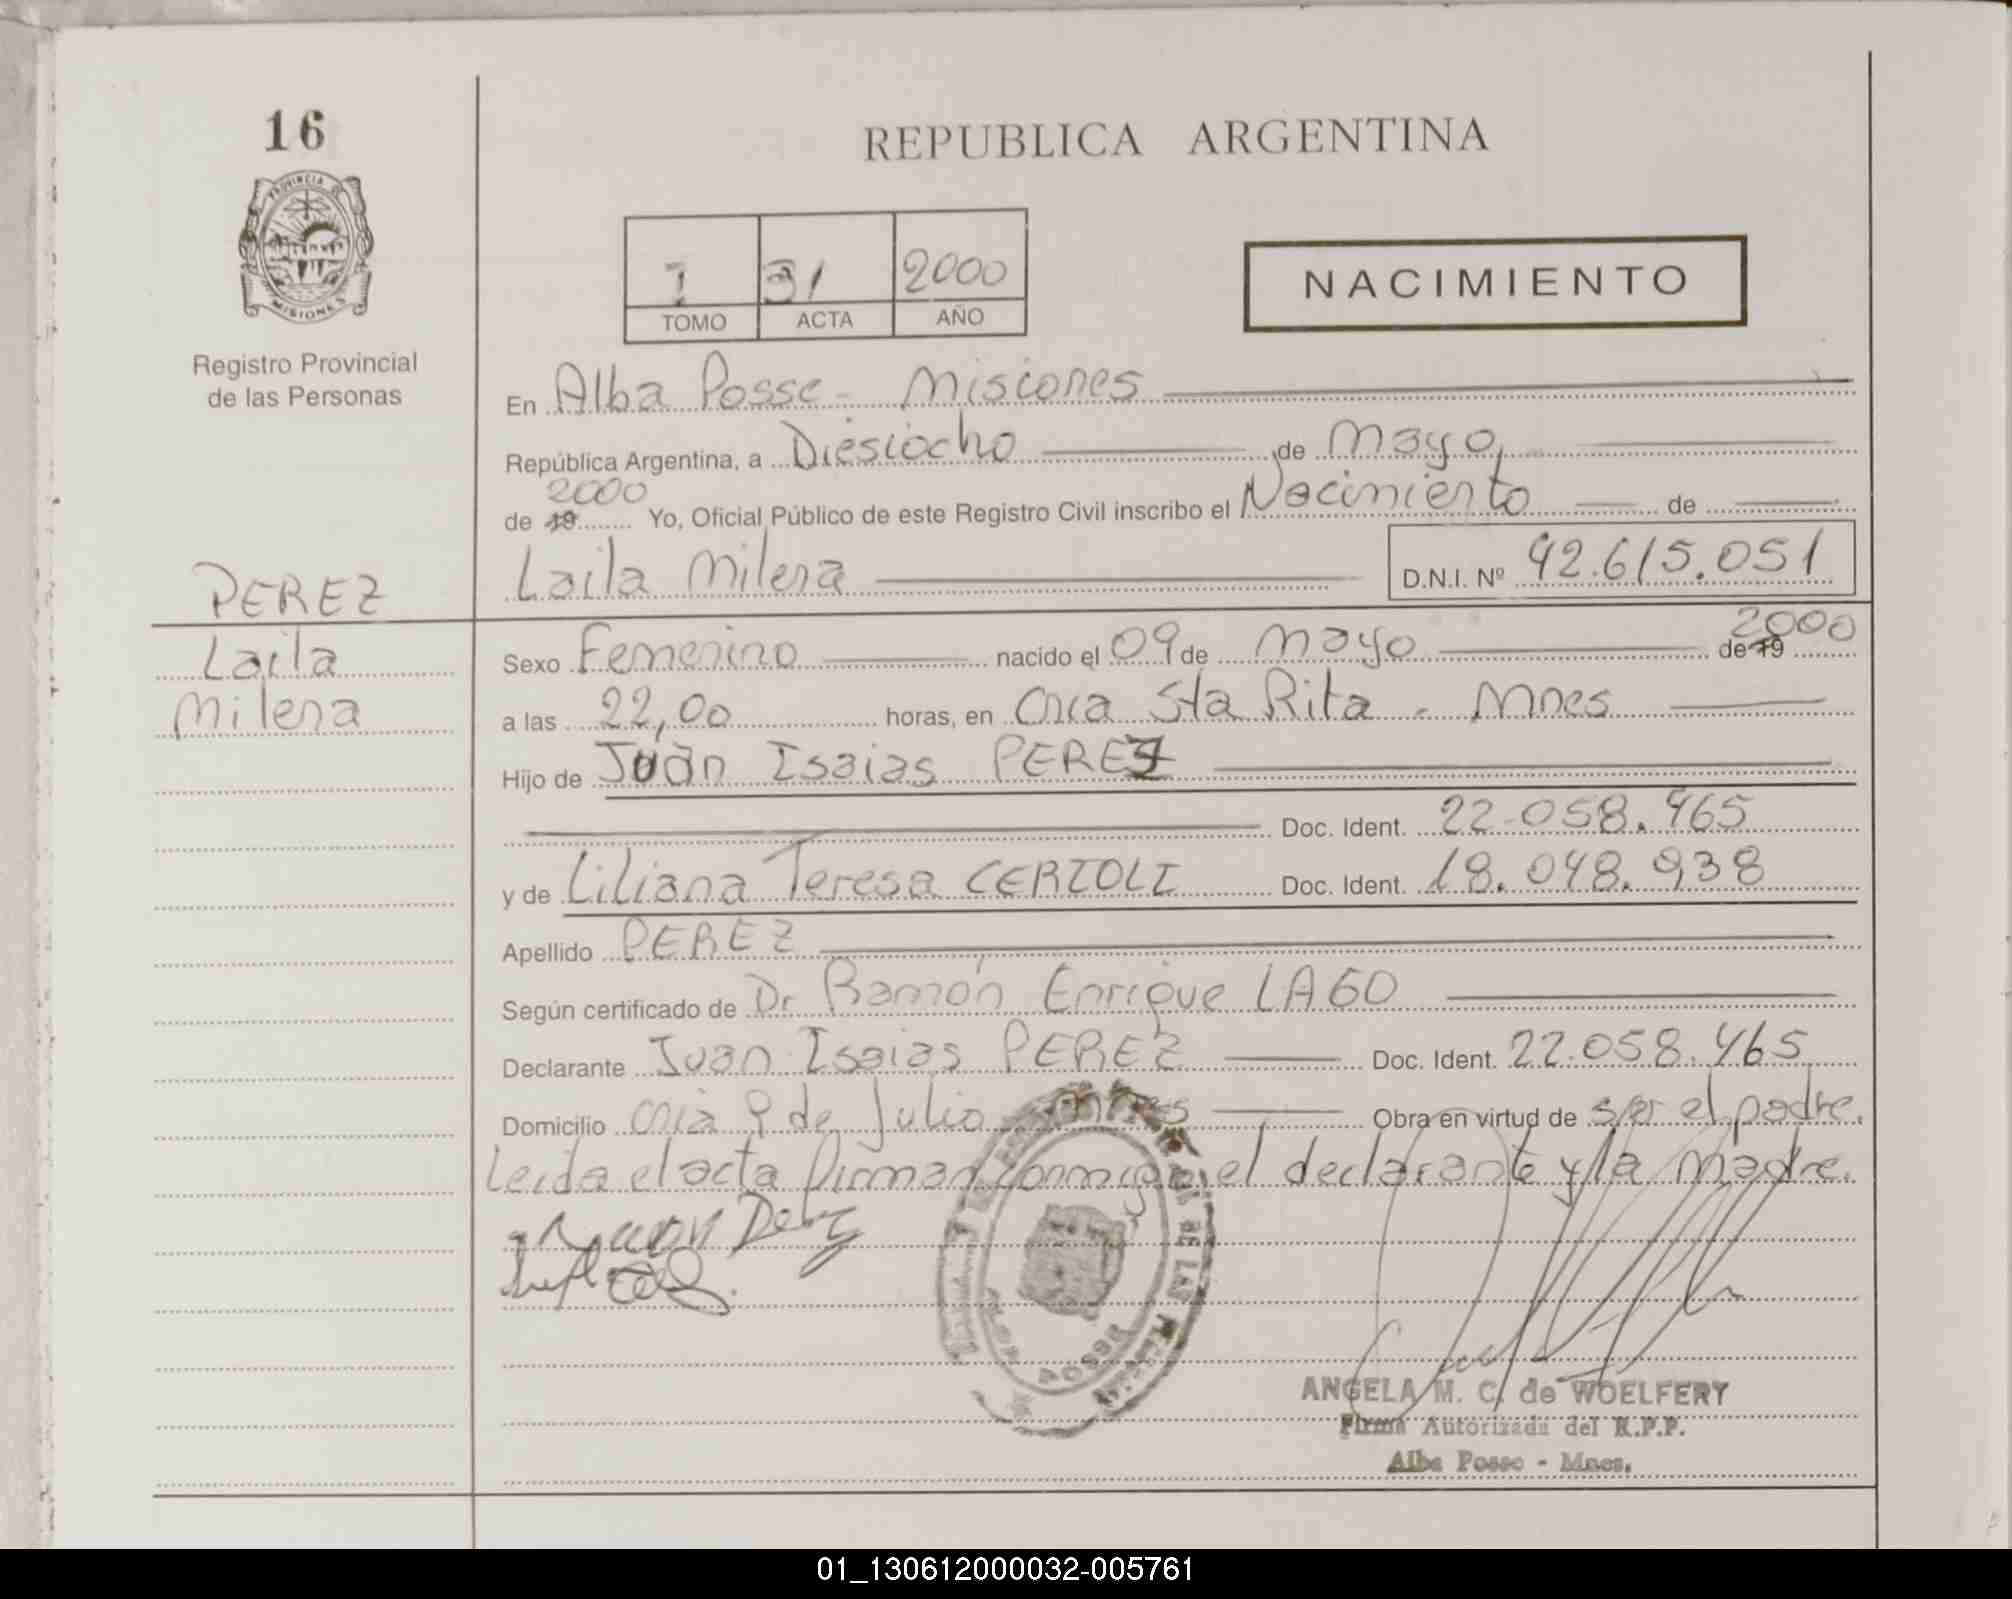 16
REPUBLICA ARGENTINA
PROVINCIA DE
MISIONES
Registro Provincial
de las Personas
I 31 2000
TOMO ACTA AÑO
NACIMIENTO
En Alba Posse - Misiones
República Argentina, a Diesiocho de Mayo
de 19 2000 Yo, Oficial Público de este Registro Civil inscribo el Nacimiento de
Laila Milena D.N.I. Nº 42.615.051
PEREZ
Laila
Milena
Sexo Femenino nacido el 09 de Mayo de 19 2000
a las 22,00 horas, en Cnia Sta Rita - Mnes
Hijo de Juan Isaias PEREZ
Doc. Ident. 22.058.465
y de Liliana Teresa CERIOLI Doc. Ident. 18.048.938
Apellido PEREZ
Según certificado de Dr Ramón Enrique LAGO
Declarante Juan Isaias PEREZ Doc. Ident. 22.058.465
Domicilio Cnia 9 de Julio Mnes Obra en virtud de ser el padre.
Leida el acta firman conmigo, el declarante y la Madre.
DE LAS
POSSE
ANGELA M. C. de WOELFERY
Firma Autorizada del R.P.P.
Alba Posse - Mnes.
01_130612000032-005761